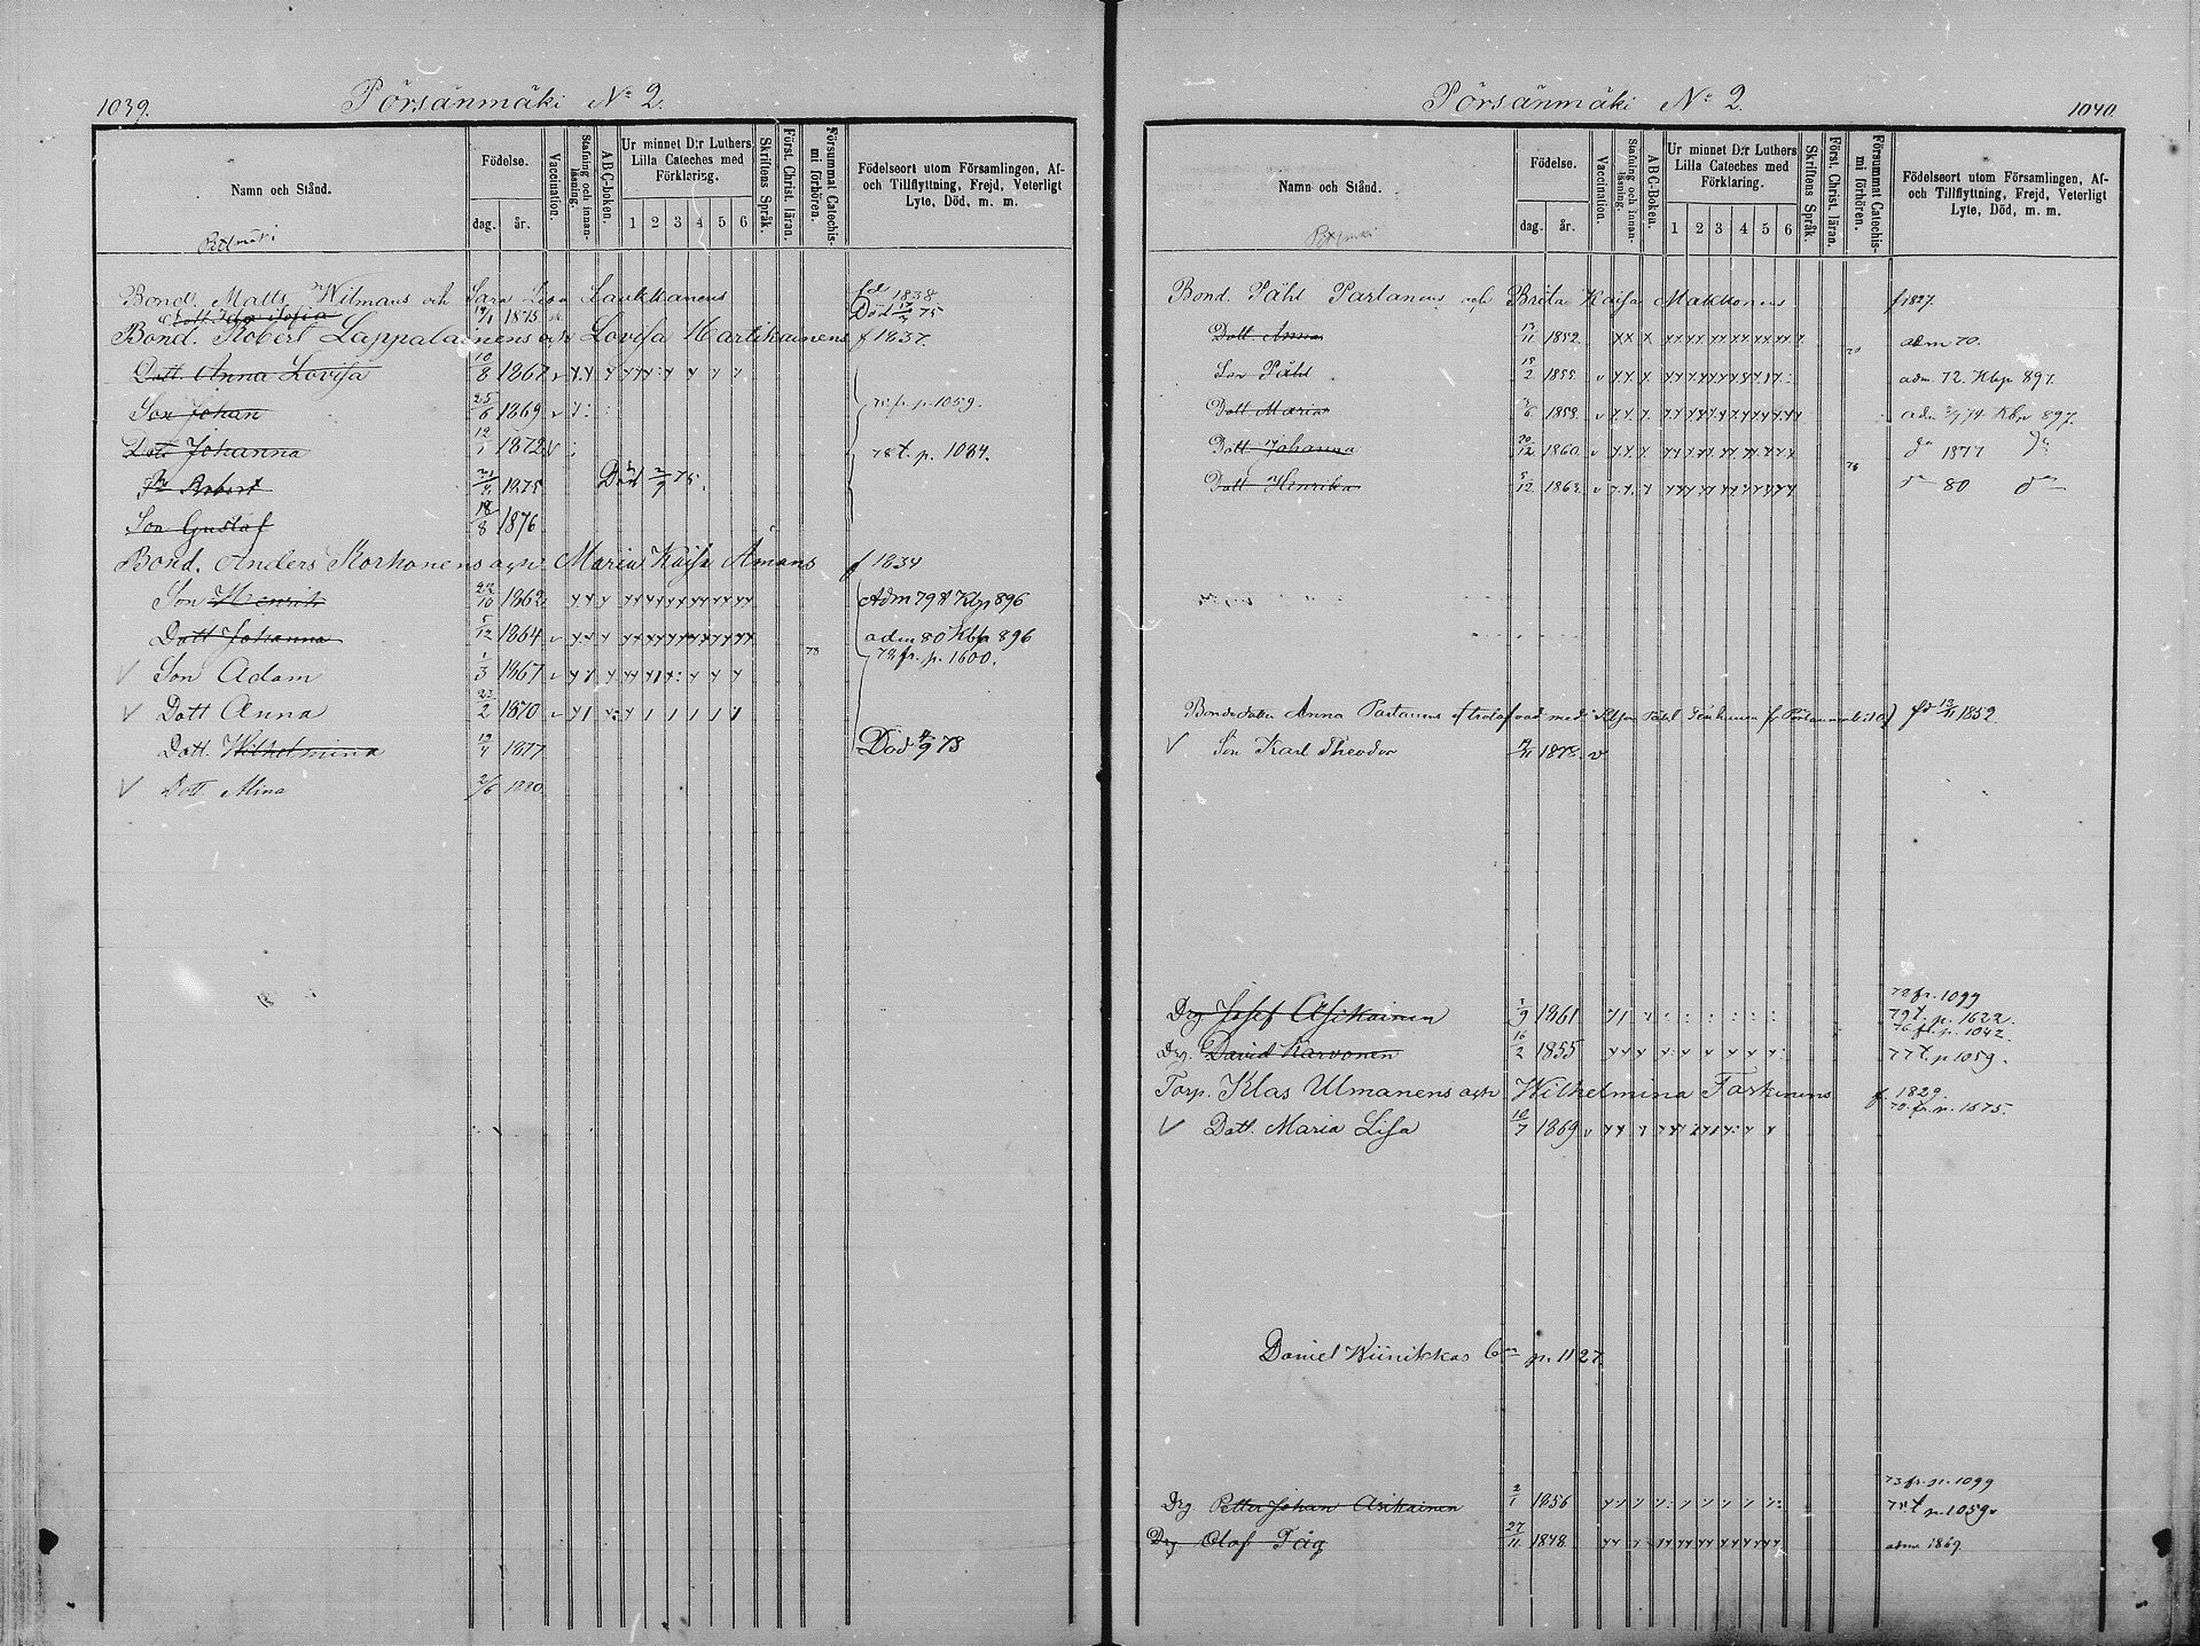 1039. Pörsänmäki No 2.
Namn och Stånd. Födelse. dag. år. Vaccination. Stafning och innanläsning. ABC-boken. Ur minnet D:r Luthers Lilla Cateches med Förklaring. 1 2 3 4 5 6 Skriftens Språk. Först. Christ. läran. Försummat Catechismi förhören. Födelseort utom Församlingen, Af- och Tillflyttning, Frejd, Veterligt Lyte, Död, m. m.
Bond. Matts Wilmans och Sara Lisa Laukkanens fd 1838
Dott. Ida Sofia 1875 Död 75
Bond. Robert Lappalainens och Lovisa Hartikainens f 1837.
Dott. Anna Lovisa 10/8 1867
Son Johan 25/6 1869 fr p. 1059.
Dott Johanna 12/1 1872 78 t. p. 1084.
Robert 1875 Död 2/9 75.
Son Gustaf 18/8 1876
Bond. Anders Korhonens och Maria Kaisa Åmans f 1834
Son Henrik 22/10 1862 Adm 79 Kbp 896
Dott Johanna 5/12 1864 adm 80 Kbp 896
fr. p. 1600.
Son Adam 1/3 1867
Dott Anna 23/2 1870
Dott. Wilhelmina 1877 Död 78
Dott Mina 2/6 1880.
1040. Pörsänmäki No 2.
Namn och Stånd. Födelse. dag. år. Vaccination. Stafning och innanläsning. ABC-Boken. Ur minnet D:r Luthers Lilla Cateches med Förklaring. 1 2 3 4 5 6 Skriftens Språk. Först. Christ. läran. Försummat Catechismi förhören. Födelseort utom Församlingen, Af- och Tillflyttning, Frejd, Veterligt Lyte, Död, m. m.
Bond. Påhl Partanens och Brita Kaisa Makkonens f 1827.
Dott Anna 1852. adm 70.
Son Påhl 1855. adm. 72. Kbp 897.
Dott Maria 1858. adm 74 Kbp 897.
Dott Johanna 20/12 1860. 1877
Dott Henrika 5/12 1863. 80
Bondedotter Anna Partanens Påhl fd 1852.
Son Karl Theodor 1878. v
Drg Josef Asikainen 1/9 1861 fr. 1099
79 t. p. 1622.
76 fr. p. 1042.
Drg. David Karvonen 16/2 1855 77 t. p 1059.
Torp. Klas Ulmanens och Wilhelmina Tarkinens f. 1829.
70. fr. p. 1675.
Dott. Maria Lisa 10/7 1869
Daniel Wiinikkas p. 1127.
73 fr. p. 1099
Drg Petter Johan Asikainen 2/1 1856 t p. 1059
Drg Olof Tåg 27/11 1848. adm. 1869